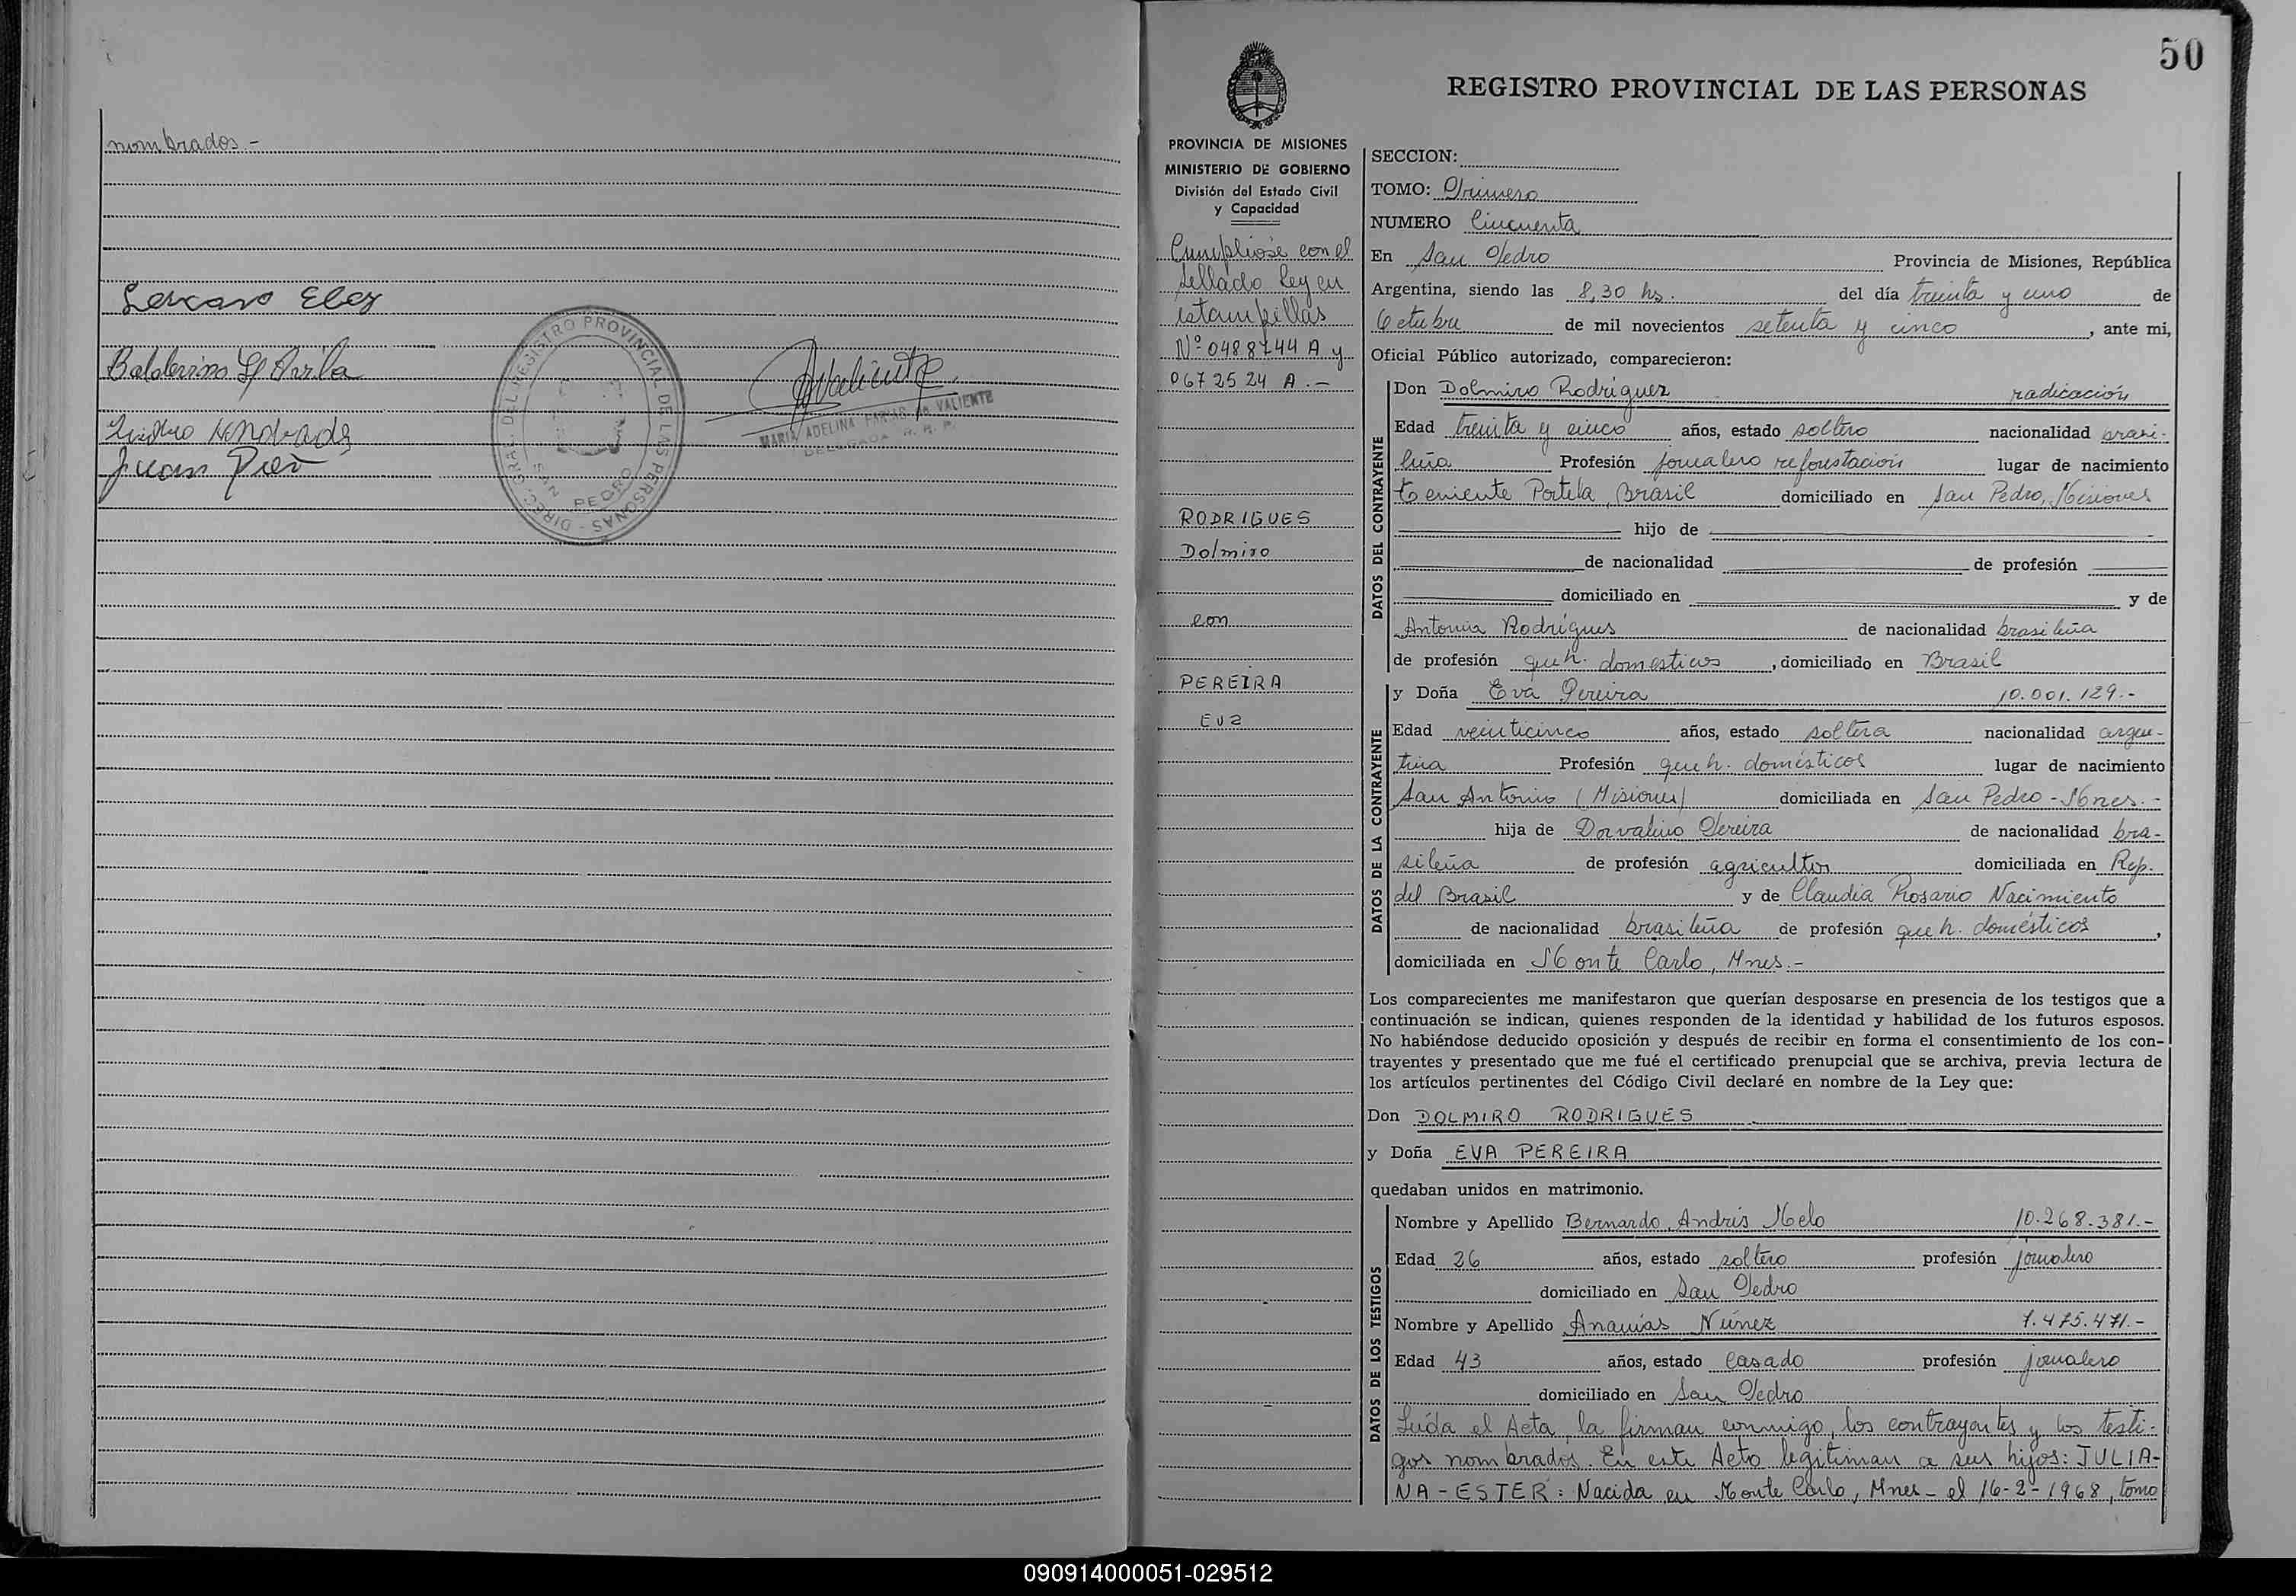 nombrados.-
Juan
DIREC. GRAL. DEL REGISTRO PROVINCIAL DE LAS PERSONAS
SAN PEDRO
MARIA ADELINA FARIAS de VALIENTE
DELEGADA R. P. P.
50
REGISTRO PROVINCIAL DE LAS PERSONAS
PROVINCIA DE MISIONES
MINISTERIO DE GOBIERNO
División del Estado Civil
y Capacidad
Cumplióse con el
sellado Ley en
estampillas
Nº 0488744 A y
0672524 A.-
RODRIGUES
Dolmiro
con
PEREIRA
Eva
SECCION:
TOMO: Primero
NUMERO Cincuenta
En San Pedro Provincia de Misiones, República
Argentina, siendo las 8,30 hs. del día treinta y uno de
Octubre de mil novecientos setenta y cinco, ante mi,
Oficial Público autorizado, comparecieron:
DATOS DEL CONTRAYENTE
Don Dolmiro Rodriguez radicación
Edad treinta y cinco años, estado soltero nacionalidad brasi-
leña Profesión jornalero reforestación lugar de nacimiento
teniente Portela, Brasil domiciliado en San Pedro, Misiones
hijo de
de nacionalidad de profesión
domiciliado en y de
Antonia Rodrigues de nacionalidad brasileña
de profesión queh. domesticos, domiciliado en Brasil
DATOS DE LA CONTRAYENTE
y Doña Eva Pereira 10.001.129.-
Edad veinticinco años, estado soltera nacionalidad argen-
tina Profesión queh. domésticos lugar de nacimiento
San Antonio (Misiones) domiciliada en San Pedro - Mnes.-
hija de Dorvalino Pereira de nacionalidad bra-
sileña de profesión agricultor domiciliada en Rep.
del Brasil y de Claudia Rosario Nacimiento
de nacionalidad brasileña de profesión queh. domésticos,
domiciliada en Monte Carlo, Mnes.-
Los comparecientes me manifestaron que querían desposarse en presencia de los testigos que a
continuación se indican, quienes responden de la identidad y habilidad de los futuros esposos.
No habiéndose deducido oposición y después de recibir en forma el consentimiento de los con-
trayentes y presentado que me fué el certificado prenupcial que se archiva, previa lectura de
los artículos pertinentes del Código Civil declaré en nombre de la Ley que:
Don DOLMIRO RODRIGUES
y Doña EVA PEREIRA
quedaban unidos en matrimonio.
DATOS DE LOS TESTIGOS
Nombre y Apellido Bernardo Andrés Melo 10.268.381.-
Edad 26 años, estado soltero profesión jornalero
domiciliado en San Pedro
Nombre y Apellido Ananias Núnez 7.475.471.-
Edad 43 años, estado casado profesión jornalero
domiciliado en San Pedro
Leída el Acta, la firman conmigo, los contrayentes y los testi-
gos nombrados. En este Acto legitiman a sus hijos: JULIA-
NA - ESTER: Nacida en Monte Carlo, Mnes - el 16-2-1968, tomo
090914000051-029512